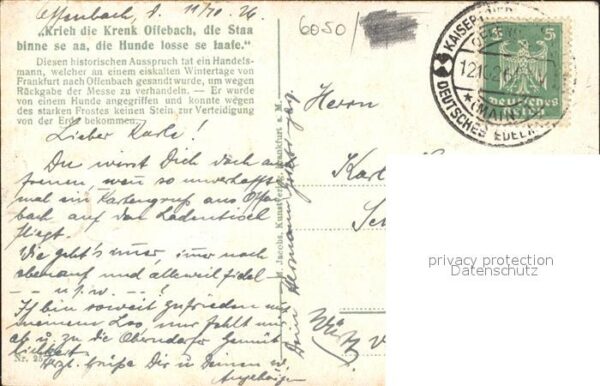 Offenbach, d. 11/10. 26.
6050
„Krieh die Krenk Offebach, die Staa
binne se aa, die Hunde losse se laafe."
Diesen historischen Ausspruch tat ein Handels-
mann, welcher an einem eiskalten Wintertage von
Frankfurt nach Offenbach gesandt wurde, um wegen
Rückgabe der Messe zu verhandeln. — Er wurde
von einem Hunde angegriffen und konnte wegen
des starken Frostes keinen Stein zur Verteidigung
von der Erde bekommen.
Lieber Karle!
Du wirst Dich doch a
freuen, wenn so unverhofft
mal ein Kartengruss aus Offen
bach auf den Ladentisch
fliegt.
Wie geht's immer, immer noch
obenauf und alleweil fidel
— u. s. w. — !
Ich bin soweit zufrieden mit
meinem Los, nur fehlt mir
ab u. zu die Oberndorfer Gemüt
lichkeit.
Herzl. Grüße Dir u Deinen w.
Angehörigen
Nr. 252
M. Jacobs, Kunstverlag, Frankfurt a. M.
Dein Hermann
Herrn
Karl
KAISER
12.10.26
(MAIN)
DEUTSCHES EDEL
5
5
DEUTSCHES
REICH
privacy protection
Datenschutz